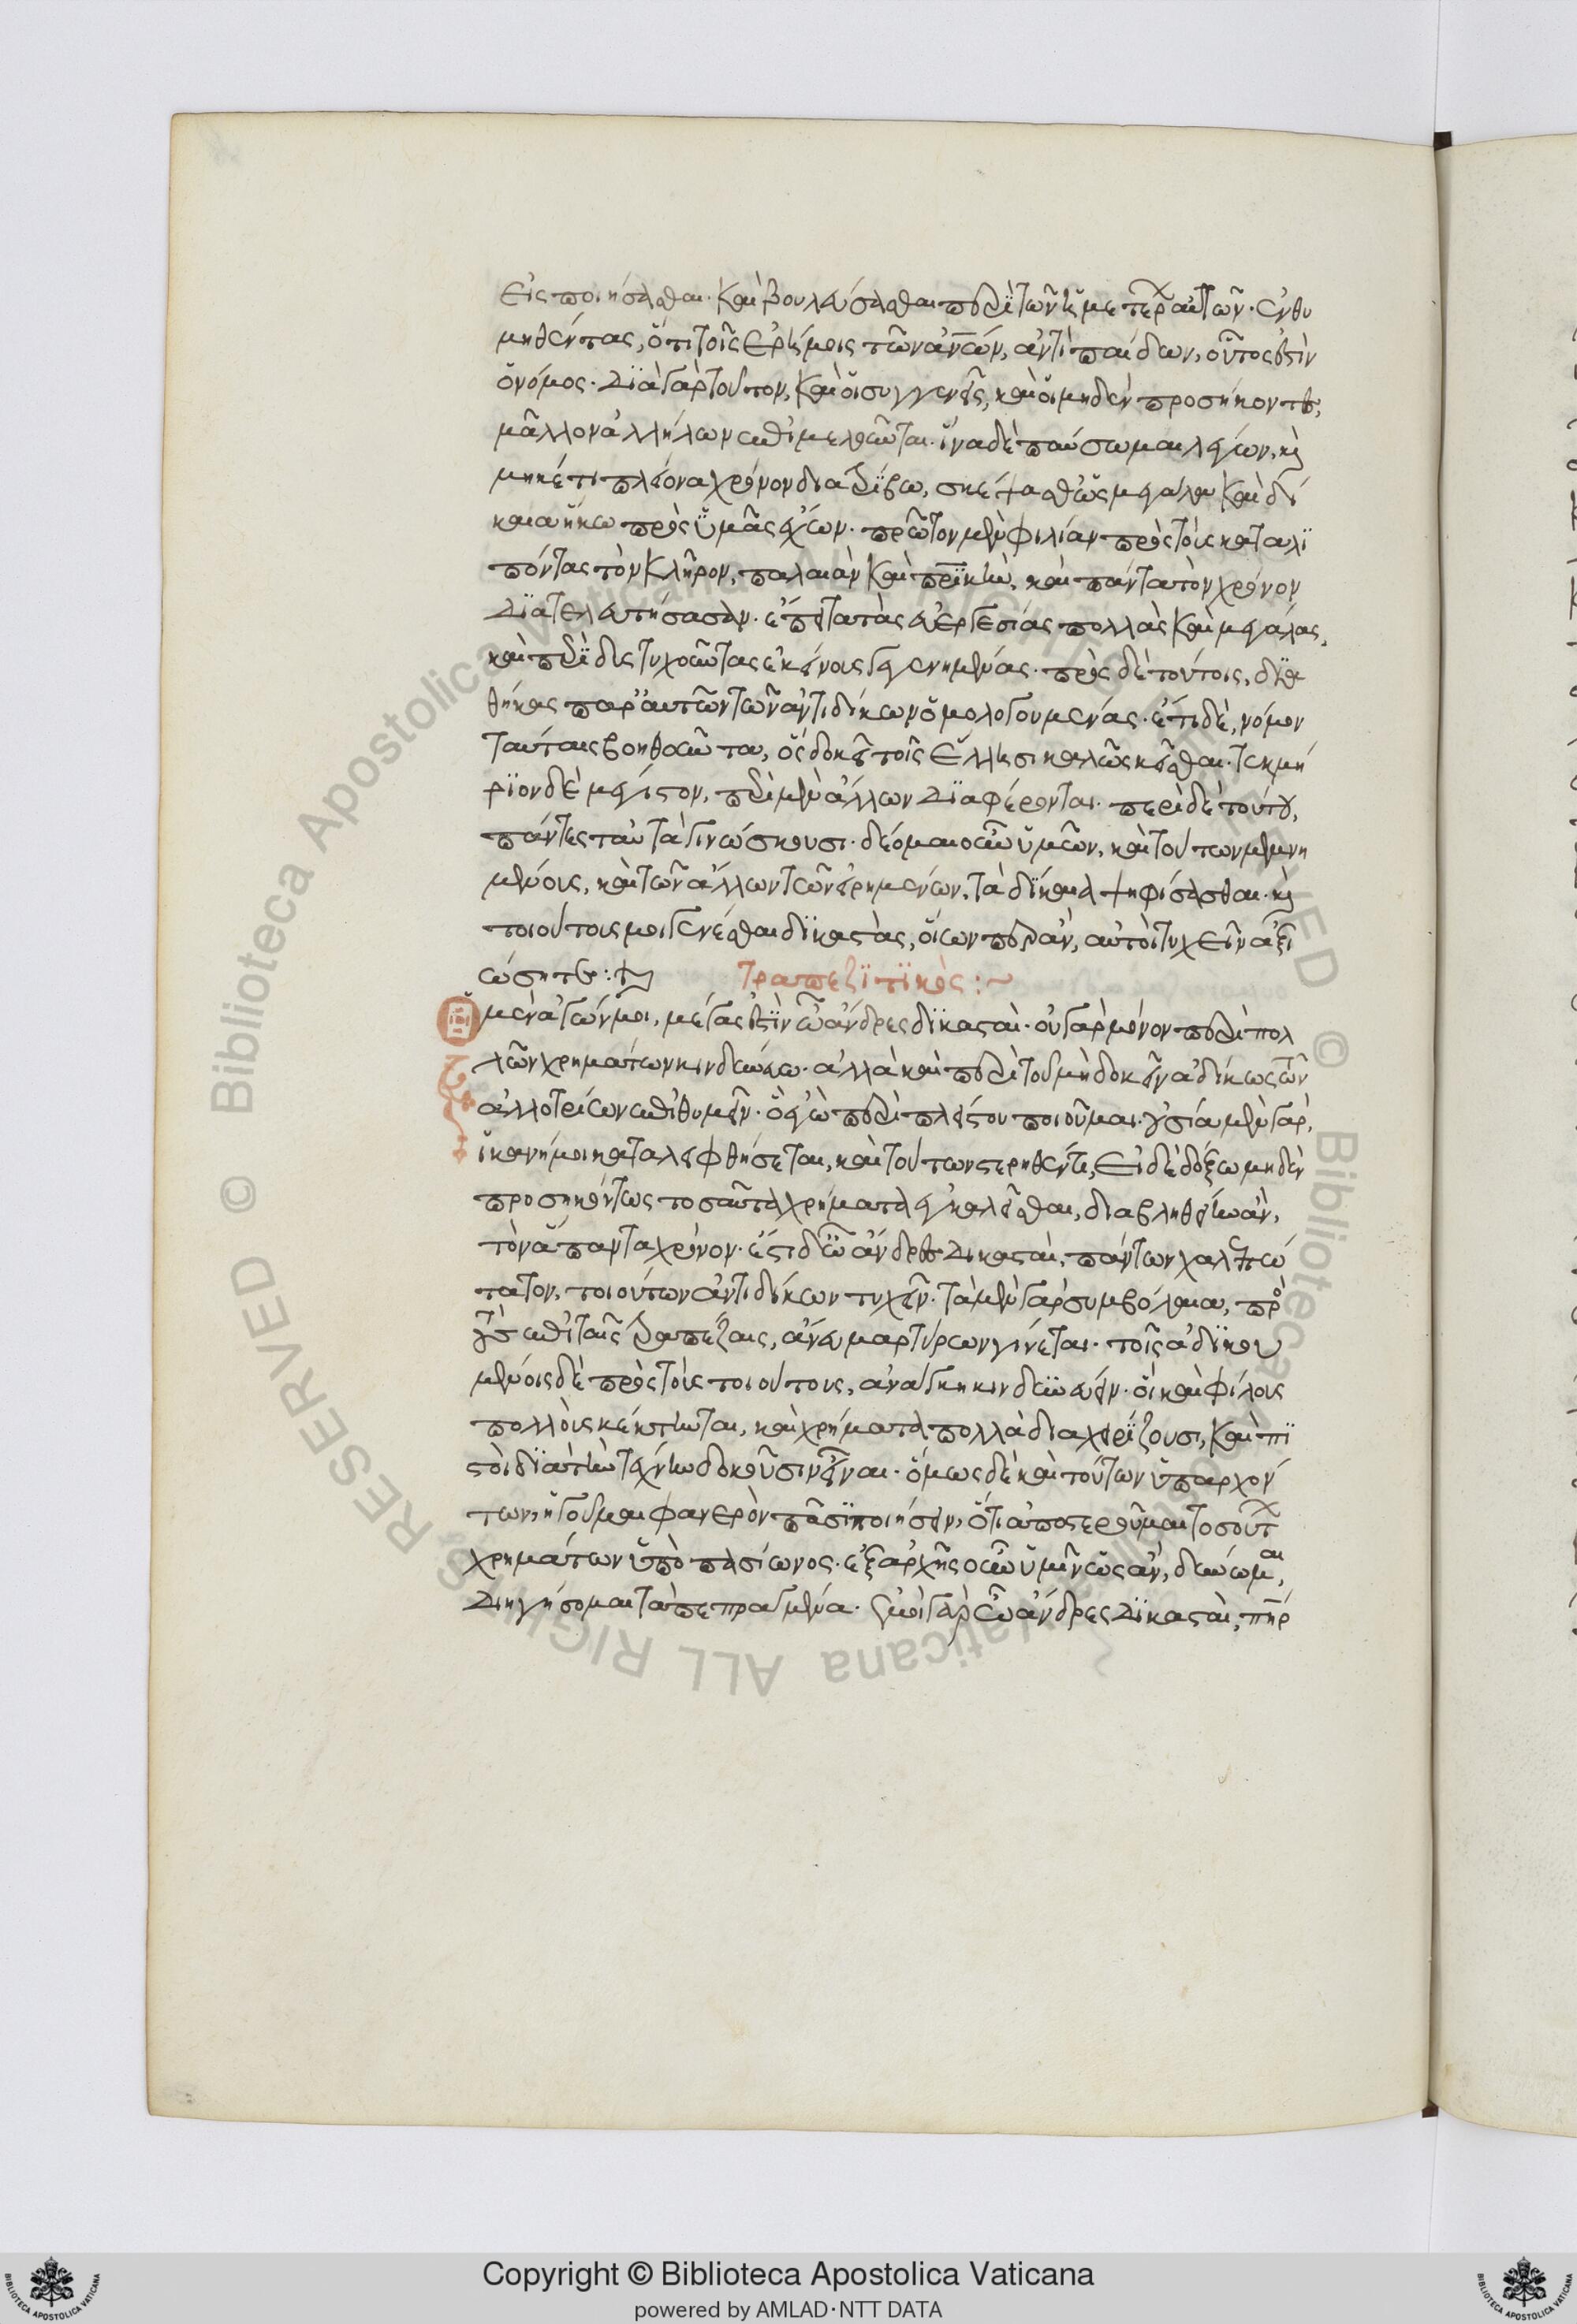 εἰσποιήσασθαι· καὶ βουλεύσασθαι περὶ τῶν ἡμετέρων αὐτῶν· ἐνθυ
μηθέντας, ὅτι τοῖς ἐρήμοις τῶν ἀνθρώπων, ἀντὶ παίδων, οὗτος ἐστὶν
ὁ νόμος· διὰ γὰρ τοῦτον, καὶ οἱ συγγενεῖς, καὶ οἱ μηδὲν προσήκοντες,
μᾶλλον ἀλλήλων ἐπιμελοῦνται· ἵνα δὲ παύσωμαι λέγων, καὶ
μηκέτι πλείονα χρόνον διατρίβω, σκέψασθε ὡς μεγάλα καὶ δί
καια ἥκω πρὸς ὑμᾶς ἔχων· πρῶτον μὲν φιλίαν πρὸς τοὺς καταλι
πόντας τὸν κλῆρον, παλαιὰν καὶ πατρικὴν, καὶ πάντα τὸν χρόνον
διατελευτήσασαν· ἔπειτα τὰς εὐεργεσίας πολλὰς καὶ μεγάλας,
καὶ περὶ δυστυχοῦντας ἐκείνους γεγενημένας· πρὸς δὲ τούτοις, δια
θήκας παρ' αὐτῶν τῶν ἀντιδίκων ὁμολογουμένας· ἔτι δὲ, νόμον
ταύταις βοηθοῦντα, ὃς δοκεῖ τοῖς ἕλλησι καλῶς κεῖσθαι· τεκμή
ριον δὲ μέγιστον, περὶ μὲν ἄλλων διαφέρονται· περὶ δὲ τούτου,
πάντες ταὐτὰ γινώσκουσι· δέομαι οὖν ὑμῶν, καὶ τούτων μεμνη
μένους, καὶ τῶν ἄλλων τῶν εἰρημένων, τὰ δίκαια ψηφίσασθαι· καὶ
τοιούτους μοι γενέσθαι δικαστὰς, οἵων περ ἂν, αὐτοὶ τυχεῖν ἀξι
ώσητε:
Τραπεζιτικὸς:~
Ὁ μὲν ἀγών μοι, μέγας ἐστὶν ὦ ἄνδρες δικασταί· οὐ γὰρ μόνον περὶ πολ
λῶν χρημάτων κινδυνεύω· ἀλλὰ καὶ περὶ τοῦ μὴ δοκεῖν ἀδίκως τῶν
ἀλλοτρίων ἐπιθυμεῖν· ὃ ἐγὼ περὶ πλείστου ποιοῦμαι· οὐσία μὲν γὰρ,
ἱκανή μοι καταλειφθήσεται, καὶ τούτων στερηθέντι, εἰ δὲ δόξω μηδὲν
προσηκόντως τοσαῦτα χρήματα ἐγκαλεῖσθαι, διαβληθείην ἂν,
τὸν ἅπαντα χρόνον· ἔστι δ' ὦ ἄνδρες δικασταὶ, πάντων χαλεπώ
τατον, τοιούτων ἀντιδίκων τυχεῖν· τὰ μὲν γὰρ συμβόλαια, πρὸς
τοὺς ἐπὶ ταῖς τραπέζαις, ἄνευ μαρτύρων γίνεται· τοῖς ἀδικου
μένοις δὲ πρὸς τοὺς τοιούτους, ἀνάγκη κινδυνεύειν· οἳ καὶ φίλους
πολλοὺς κέκτηνται, καὶ χρήματα πολλὰ διαχειρίζουσι, καὶ πι
στοὶ διὰ τὴν τέχνην δοκοῦσιν εἶναι· ὅμως δὲ καὶ τούτων ὑπαρχόν
των, ἡγοῦμαι φανερὸν πᾶσι ποιήσειν, ὅτι ἀποστεροῦμαι τοσούτων
χρημάτων ὑπὸ πασίωνος· ἐξ ἀρχῆς οὖν ὑμῖν ὡς ἂν, δύνωμαι,
διηγήσομαι τὰ πεπραγμένα· ἐμοὶ γὰρ ὦ ἄνδρες δικασταὶ, πατὴρ